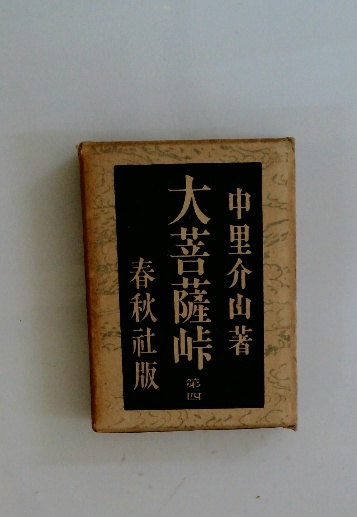 中里介山著
大菩薩峠 第四
春秋社版